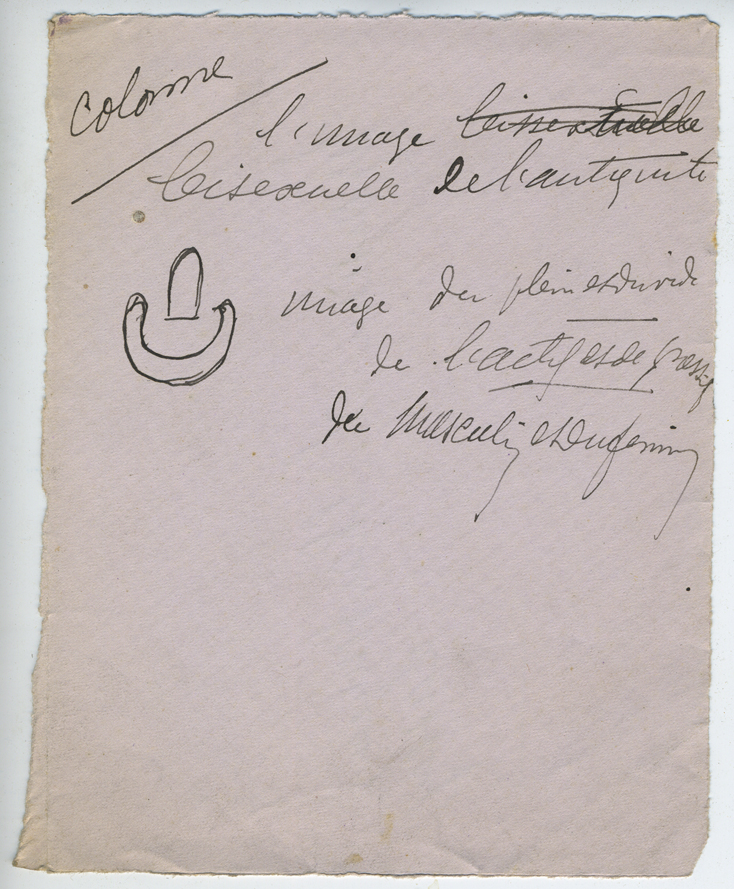 colonne
l'image bissextuelle
bisexuelle de l'antiquité
image du plein et du vide
de l'actif et de passif
du masculin et du féminin